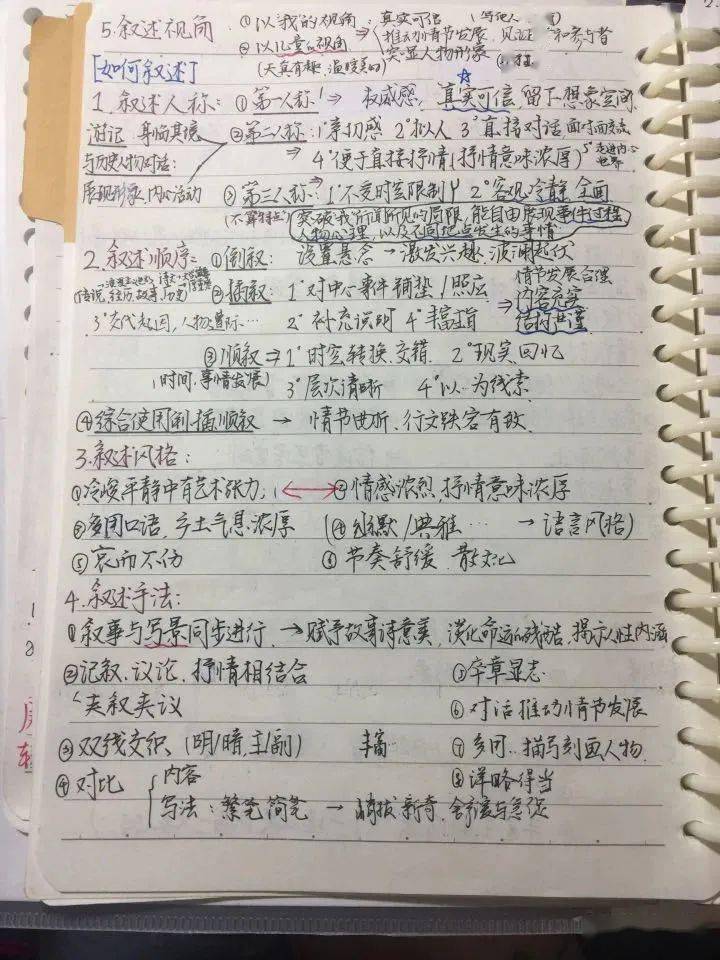 5.叙述视角 ①以我的视角:真实可信 (写他人
②以儿童的视角 ⇒ 推动情节发展、见证 和参与者
(天真有趣、温暖美好) 突显人物形象
[如何叙述]
1.叙述人称:①第一人称 ⇒ 权威感,真实可信 留下想象空间
游记 身临其境 ②第二人称:1°亲切感 2°拟人 3°直接对话 面对面交流
与历史人物对话: ⇒ 4°便于直接抒情(抒情意味浓厚) 5°走进内心世界
展现形象、内心活动 ③第三人称:⇒1°不受时空限制 2°客观冷静 全面
(不算特点) 突破“我”所闻所见的局限,能自由展现事件过程
人物心理,以及不同地点发生的事情
2.叙述顺序:①倒叙: 设置悬念→激发兴趣,波澜起伏
传说,经历,故事,历史 ②插叙: 1°对中心事件铺垫/照应 情节发展合理
⇒ 内容充实
3°交代起因,人物… 2°补充说明 4°丰富 结构严谨
③顺叙⇒1°时空转换、交错 2°现实、回忆
(时间、事情发展) 3°层次清晰 4°以…为线索
④综合使用倒、插、顺叙 → 情节曲折、行文跌宕有致
3.叙述风格:
①冷峻平静中有艺术张力; ↔ ②情感浓烈,抒情意味浓厚
③多用口语,乡土气息浓厚 (④幽默/典雅… → 语言风格)
⑤哀而不伤 ⑥节奏舒缓、散文化
4.叙述手法:
①叙事与写景同步进行,→赋予故事诗意美,淡化命运的残酷,揭示人性内涵
②记叙、议论、抒情相结合 ⑤卒章显志
夹叙夹议 ⑥对话推动情节发展
③双线交织、(明/暗,主/副) 丰富 ⑦多用…描写刻画人物
④对比 内容 ⑧详略得当
写法:繁笔简笔 → 峭拔新奇、舒缓与急促